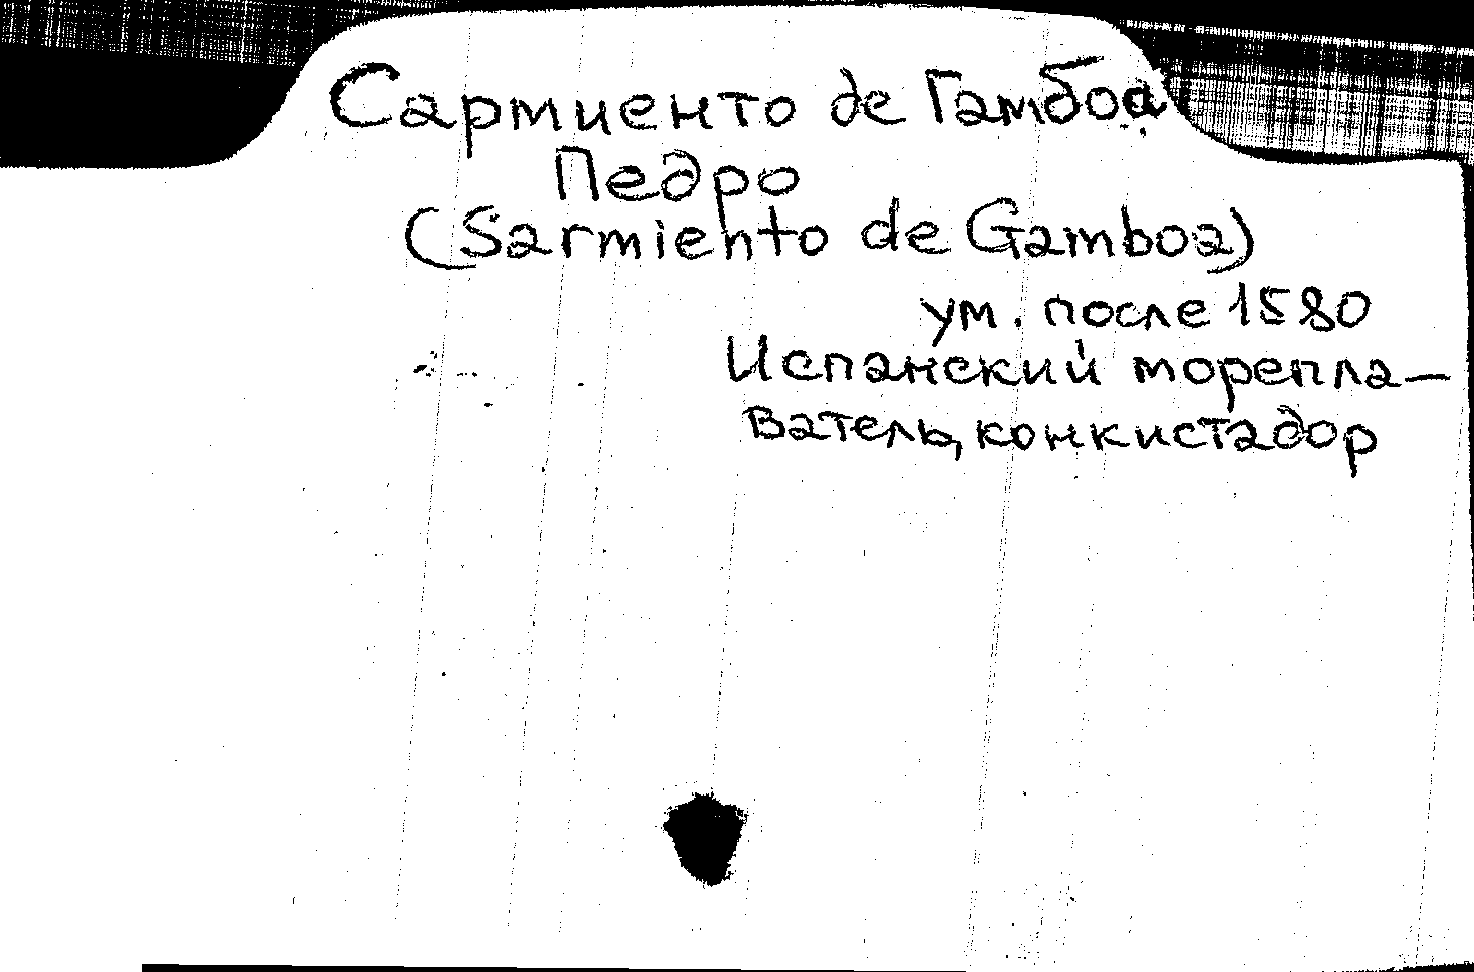 Сармиенто де Гамбоа
Педро
(Sarmiento de Gamboa)
ум. после 1580
Испанский морепла-
ватель, конкистадор